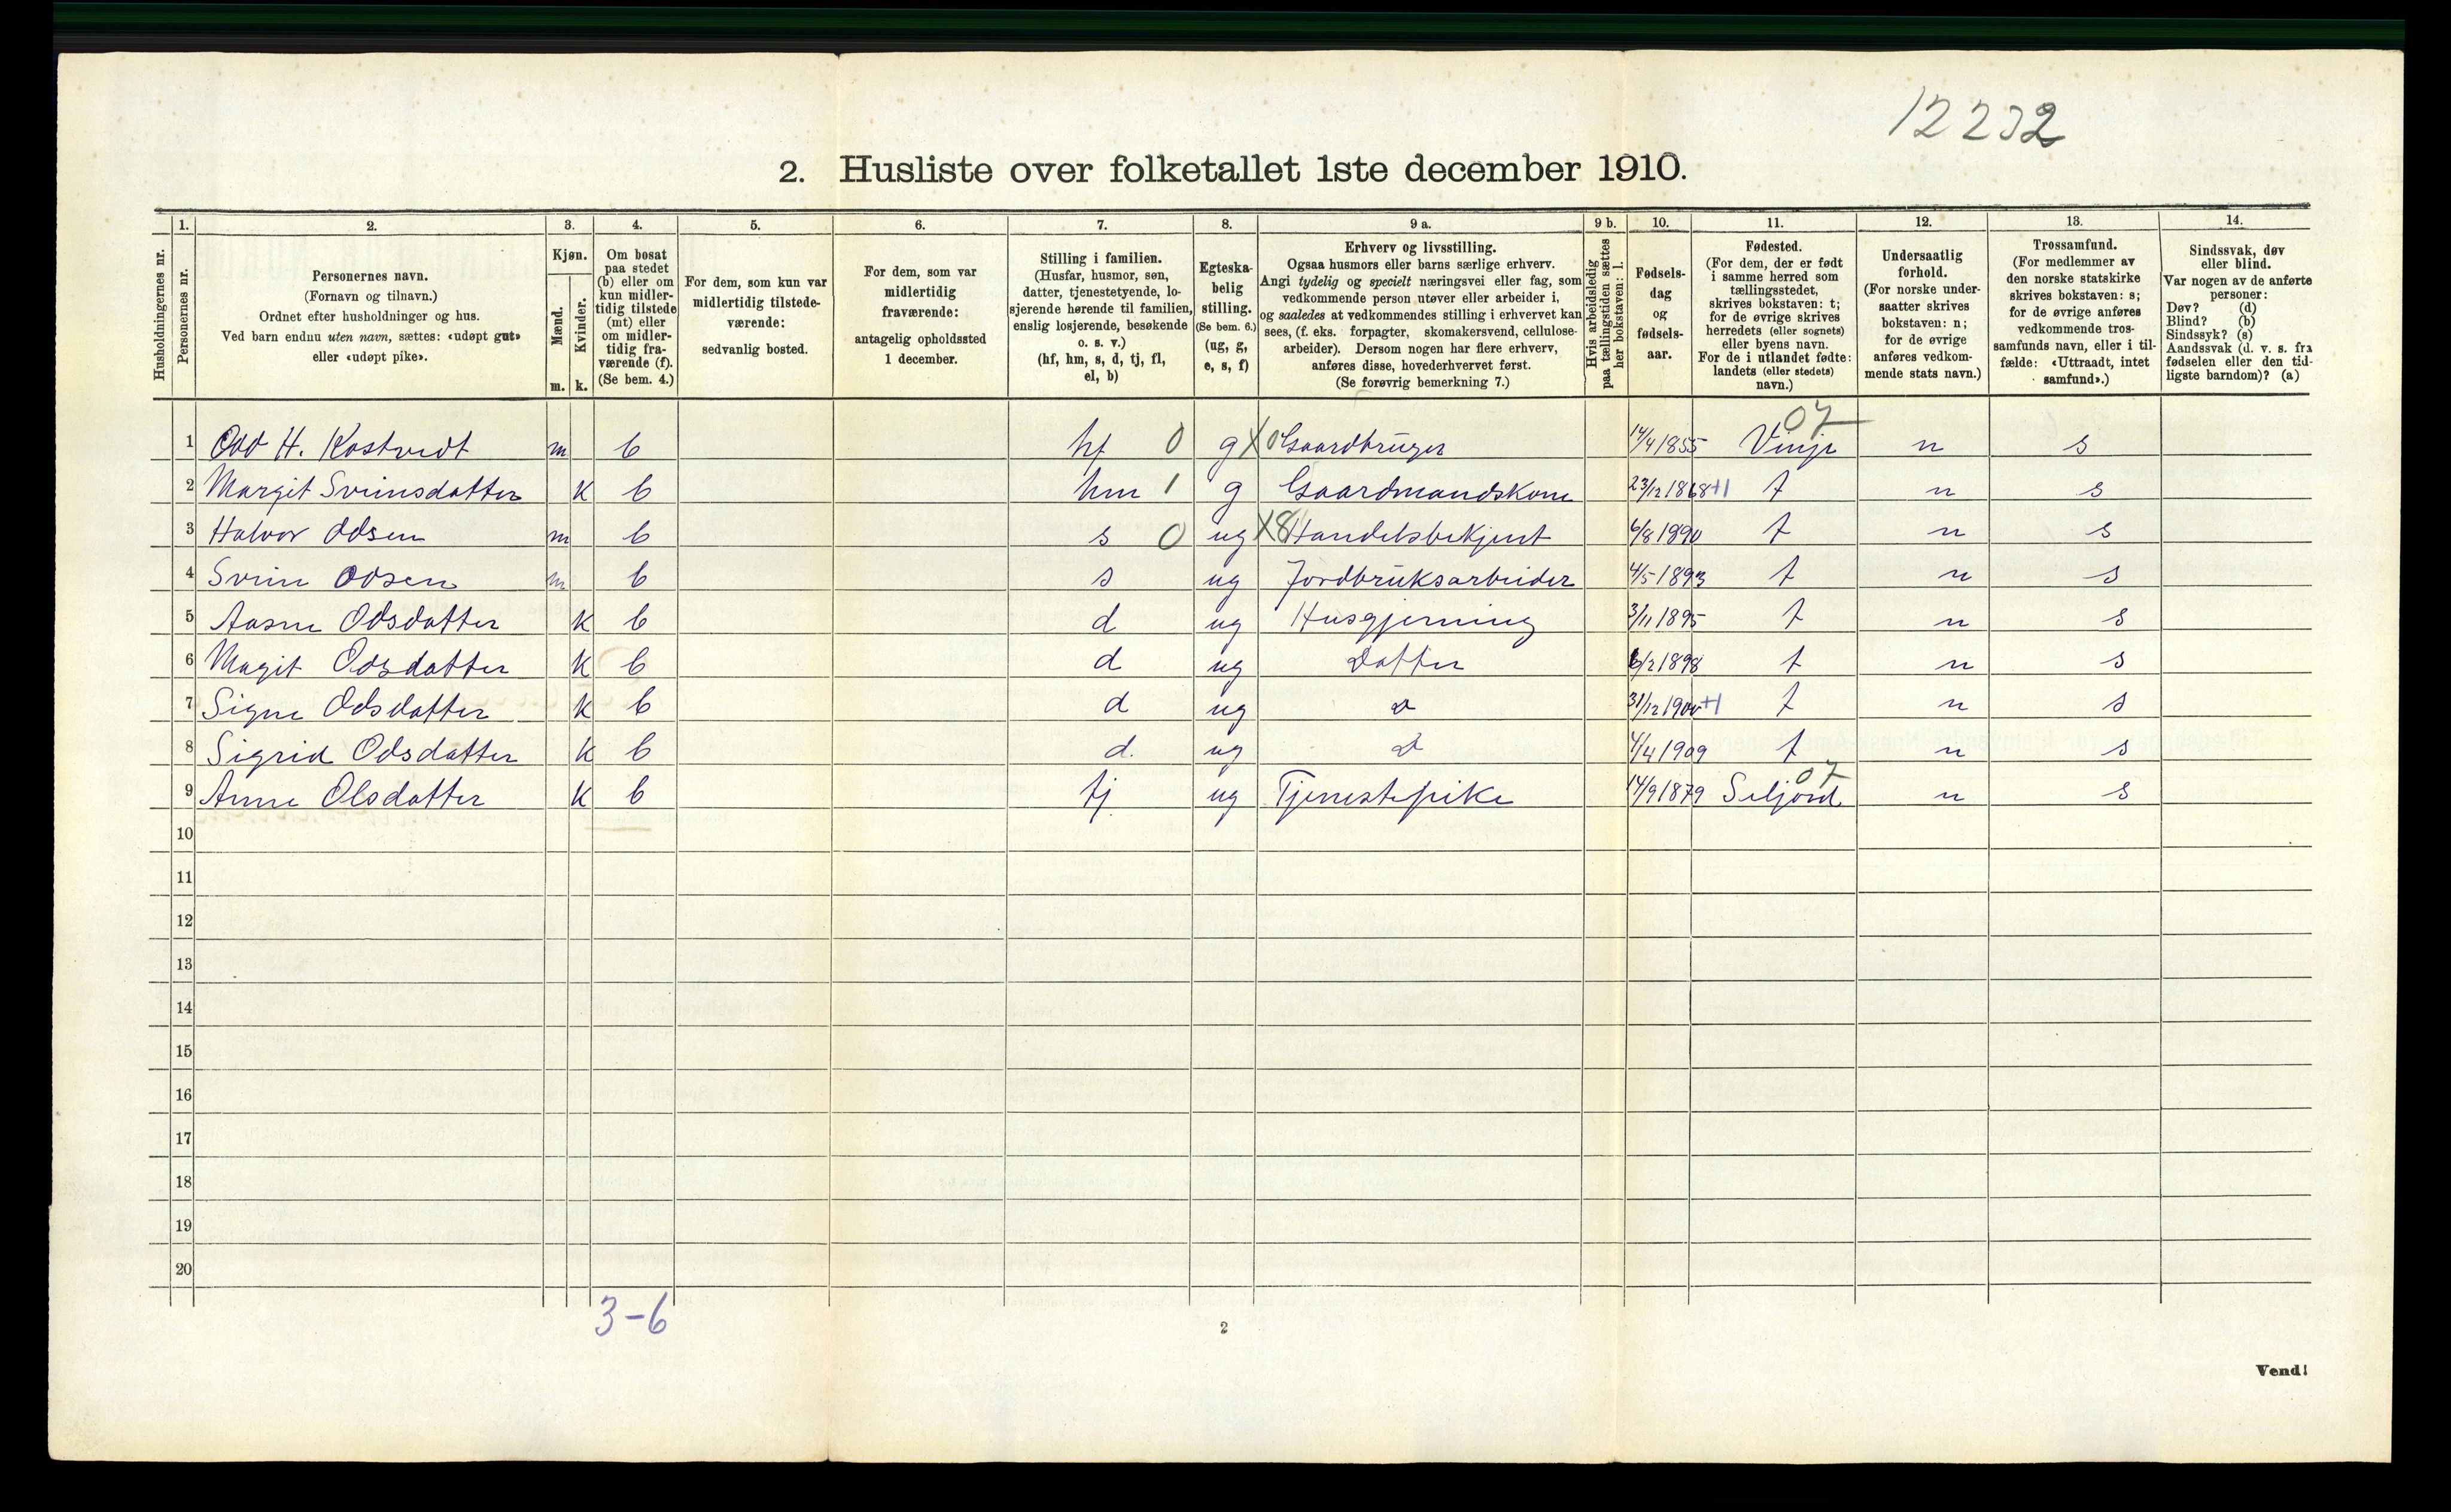 12232
2. Husliste over folketallet 1ste december 1910.
Husholdningernes nr.
1. Personernes nr.
2. Personernes navn.
(Fornavn og tilnavn.)
Ordnet efter husholdninger og hus.
Ved barn endnu uten navn, sættes: «udøpt gut»
eller «udøpt pike».
3. Kjøn.
Mænd. Kvinder.
m. k.
4. Om bosat
paa stedet
(b) eller om
kun midler-
tidig tilstede
(mt) eller
om midler-
tidig fra-
værende (f).
(Se bem. 4.)
5. For dem, som kun var
midlertidig tilstede-
værende:
sedvanlig bosted.
6. For dem, som var
midlertidig
fraværende:
antagelig opholdssted
1 december.
7. Stilling i familien.
(Husfar, husmor, søn,
datter, tjenestetyende, lo-
sjerende hørende til familien,
enslig losjerende, besøkende
o. s. v.)
(hf, hm, s, d, tj, fl,
el, b)
8. Egteska-
belig
stilling.
(Se bem. 6.)
(ug, g,
e, s, f)
9 a. Erhverv og livsstilling.
Ogsaa husmors eller barns særlige erhverv.
Angi tydelig og specielt næringsvei eller fag, som
vedkommende person utøver eller arbeider i,
og saaledes at vedkommendes stilling i erhvervet kan
sees, (f. eks. forpagter, skomakersvend, cellulose-
arbeider). Dersom nogen har flere erhverv,
anføres disse, hovederhvervet først.
(Se forøvrig bemerkning 7.)
9 b. Hvis arbeidsledig
paa tællingstiden sættes
her bokstaven: l.
10. Fødsels-
dag
og
fødsels-
aar.
11. Fødested.
(For dem, der er født
i samme herred som
tællingsstedet,
skrives bokstaven: t;
for de øvrige skrives
herredets (eller sognets)
eller byens navn.
For de i utlandet fødte:
landets (eller stedets)
navn.)
12. Undersaatlig
forhold.
(For norske under-
saatter skrives
bokstaven: n;
for de øvrige
anføres vedkom-
mende stats navn.)
13. Trossamfund.
(For medlemmer av
den norske statskirke
skrives bokstaven: s;
for de øvrige anføres
vedkommende tros-
samfunds navn, eller i til-
fælde: «Uttraadt, intet
samfund».)
14. Sindssvak, døv
eller blind.
Var nogen av de anførte
personer:
Døv? (d)
Blind? (b)
Sindssyk? (s)
Aandssvak (d. v. s. fra
fødselen eller den tid-
ligste barndom)? (a)
07
1 Odd H. Kostvedt m b hf 0 g X0 Gaardbruger 14/4 1855 Vinje n s
2 Margit Sveinsdatter k b hm 1 g Gaardmandskone 23/12 1868 +1 t n s
3 Halvor Odsen m b s 0 ug X8 Handelsbetjent 6/8 1890 t n s
4 Svein Odsen m b s ug Jordbruksarbeider 4/5 1893 t n s
5 Aasne Odsdatter k b d ug Husgjerning 3/11 1895 t n s
6 Magit Odsdatter k b d ug Datter 6/2 1898 t n s
7 Signe Odsdatter k b d ug D 31/12 1900 +1 t n s
8 Sigrid Odsdatter k b d. ug D 4/4 1909 t n s
07
9 Anne Olsdatter k b tj ug Tjenestepike 14/9 1879 Seljord n s
10
11
12
13
14
15
16
17
18
19
20
3-6
2
Vend!